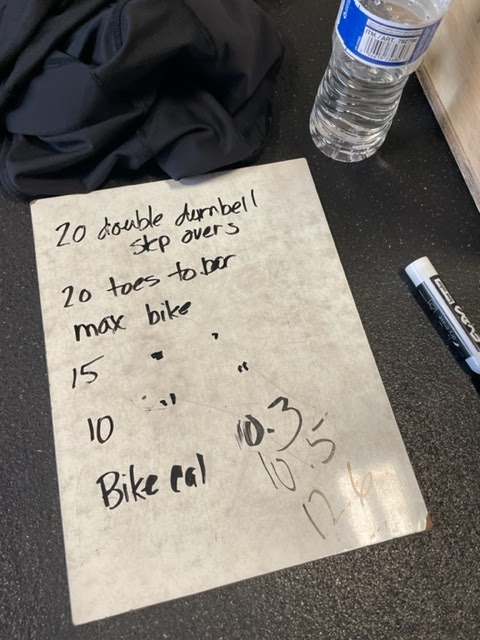 20 double dumbell
step overs
20 toes to bar
max bike
15 " "
10 " "
Bike cal
10.3
10.5
12 6
ITM./ART.
EXPO